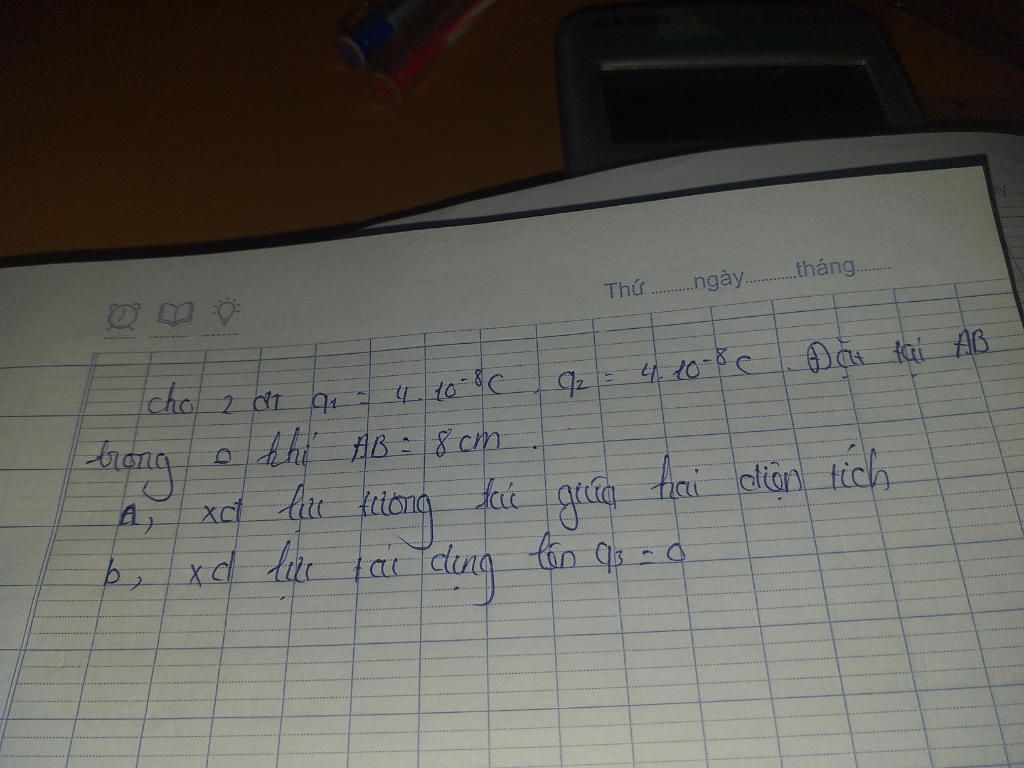 CASIO
Thứ ..........ngày............tháng........
cho 2 đt q₁ = 4.10⁻⁸C, q₂ = 4.10⁻⁸C. Đặt tại AB
trong o khí AB = 8cm.
a, xđ lực tương tác giữa hai điện tích
b, xđ lực tác dụng lên q₃ = 0